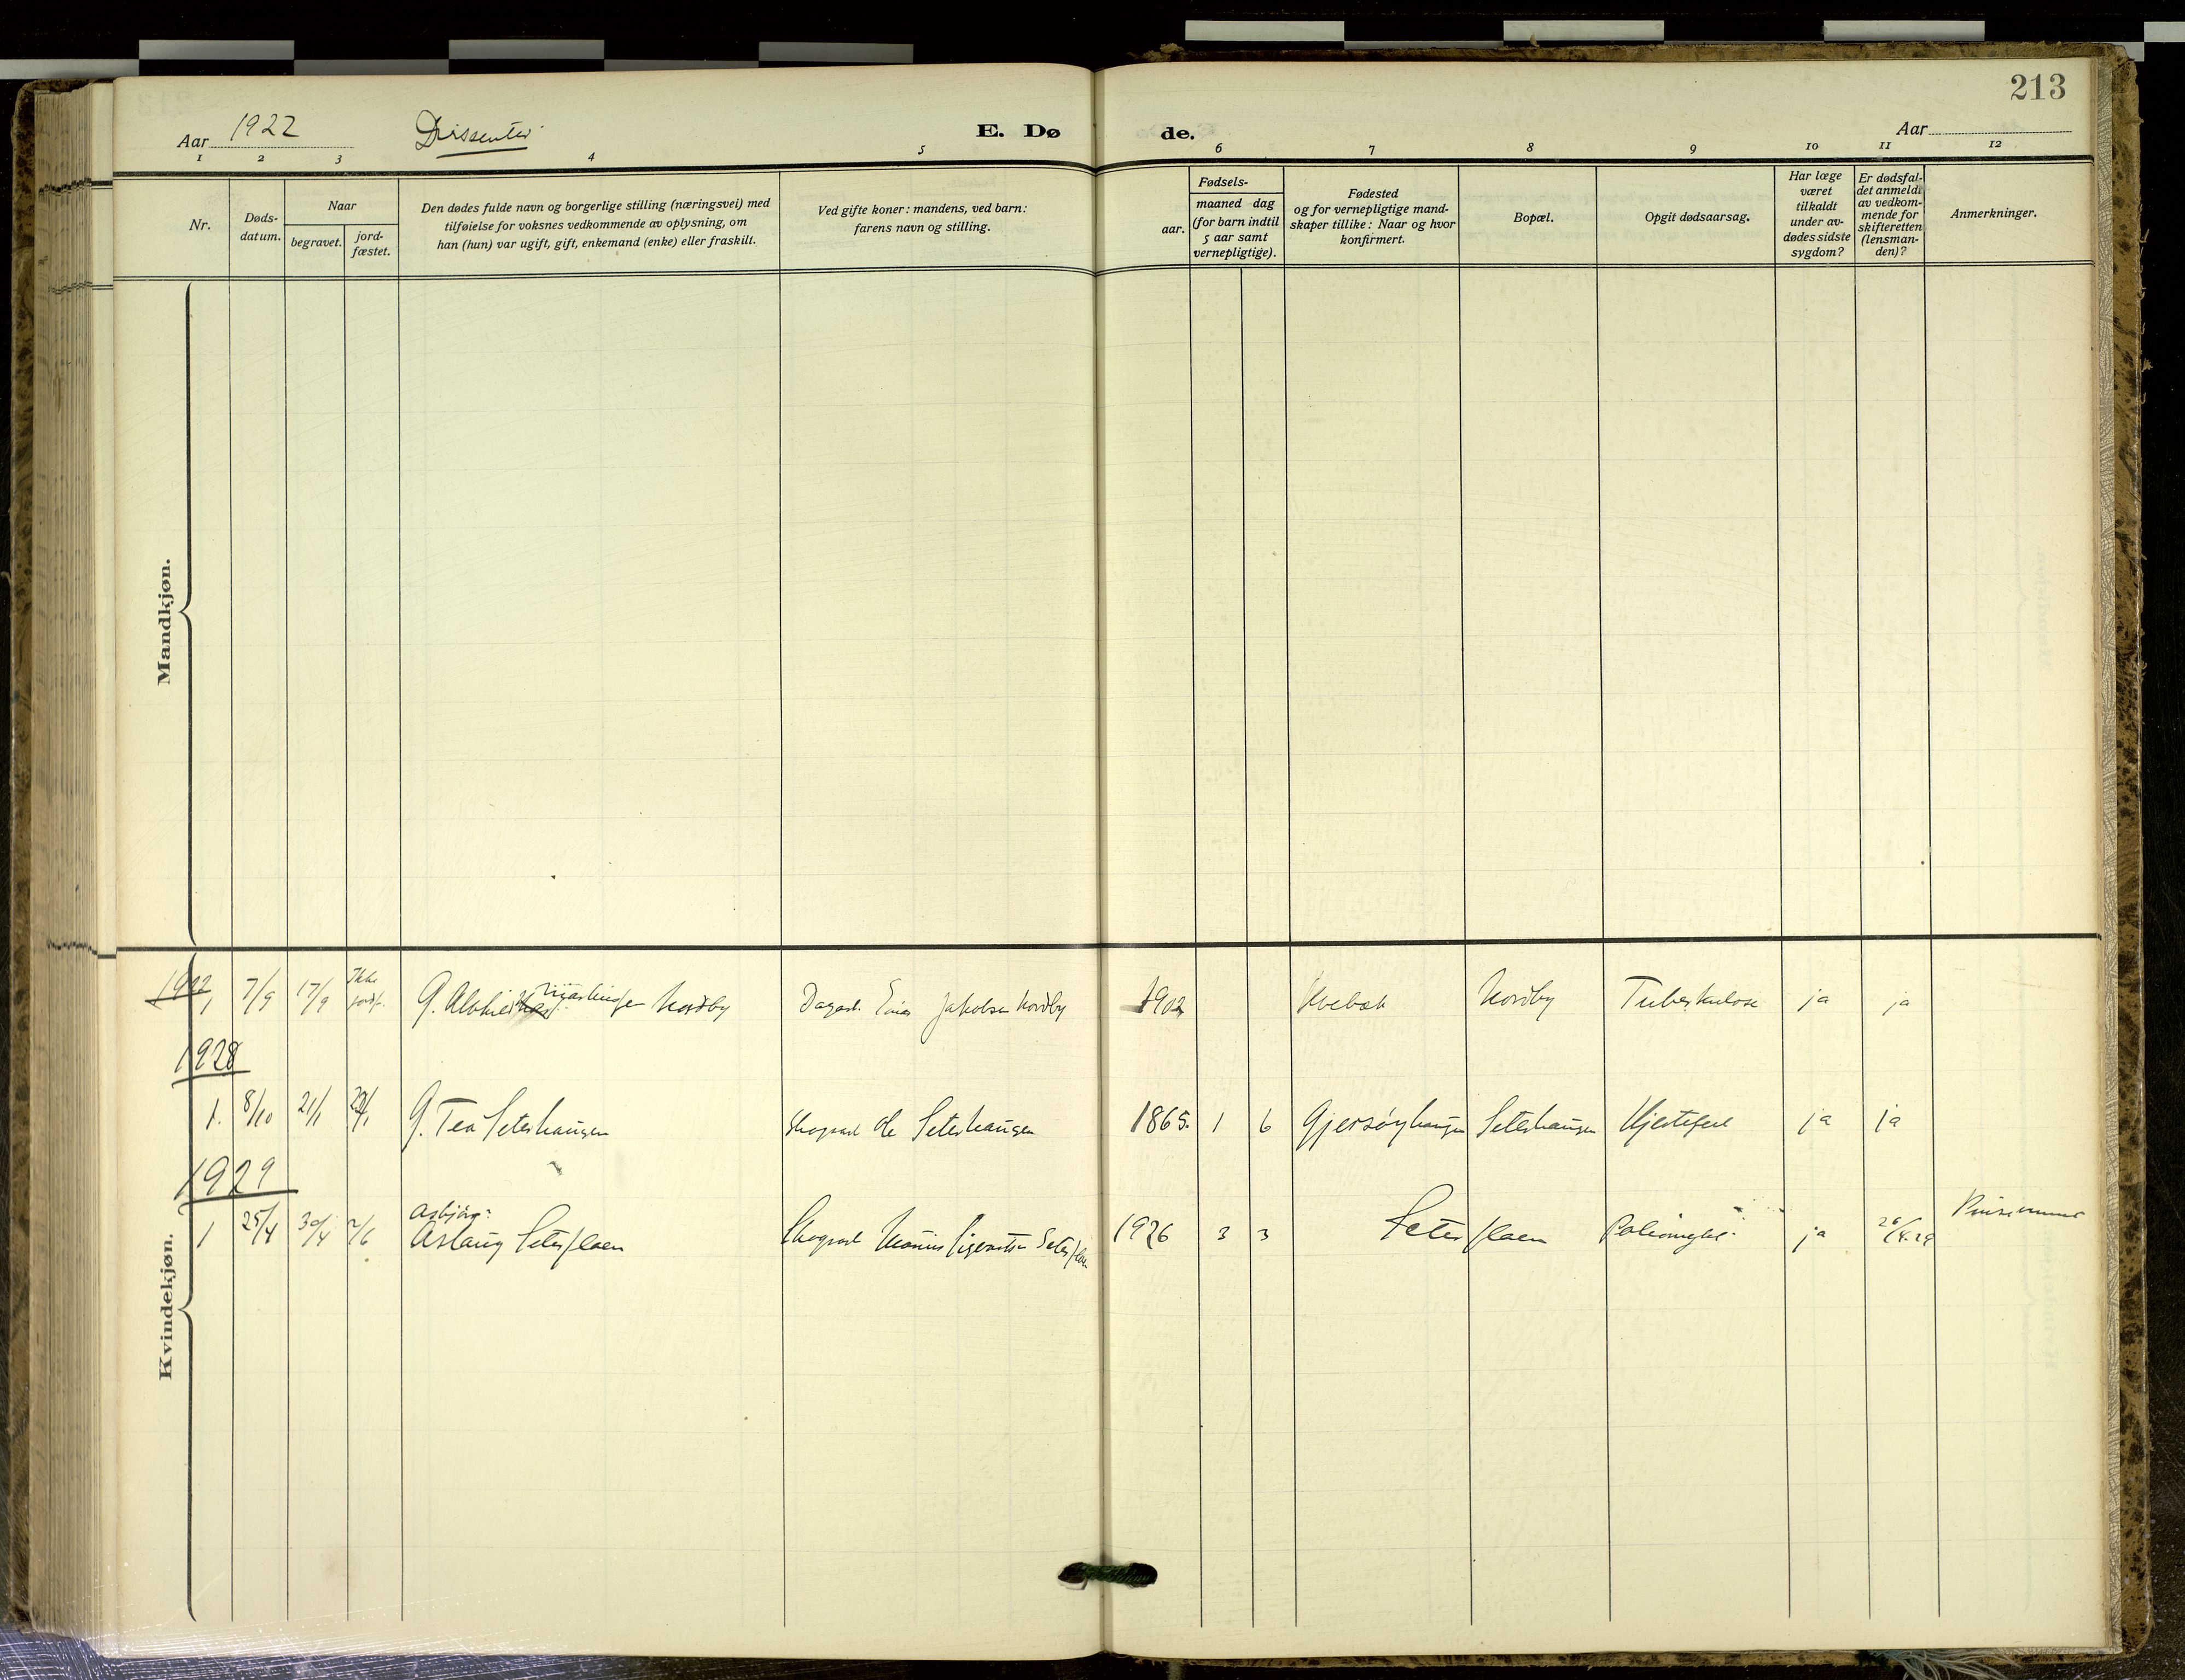 213
Aar 1922 Dissenter E. Døde. Aar
1 2 3 4 5 6 7 8 9 10 11 12
Nr.
Døds-
datum.
Naar
begravet.
jord-
fæstet.
Den dødes fulde navn og borgerlige stilling (næringsvei) med
tilføielse for voksnes vedkommende av oplysning, om
han (hun) var ugift, gift, enkemand (enke) eller fraskilt.
Ved gifte koner: mandens, ved barn:
farens navn og stilling.
Fødsels-
aar.
maaned dag
(for barn indtil
5 aar samt
vernepligtige).
Fødested
og for vernepligtige mand-
skaper tillike: Naar og hvor
konfirmert.
Bopæl.
Opgit dødsaarsag.
Har læge
været
tilkaldt
under av-
dødes sidste
sygdom?
Er dødsfal-
det anmeldt
av vedkom-
mende for
skifteretten
(lensman-
den)?
Anmerkninger.
Mandkjøn.
Kvindekjøn.
1922
1 7/9 17/9 Ikke jordf. G. Nordby Dagarb. Einar Jakobsen Nordby 1902 Nordby Tuberkulose ja ja
1928
1. 8/10 21/1 G. Tea Seterhaugen Skogsarb Ole Seterhaugen 1865. 1 6 Gjersøyhaugen Seterhaugen Hjertefeil ja ja
1929
Asbjørg
1 25/4 30/4 2/6 Aslaug Seterflaen Skogsarb Seterflaen 1926 3 3 Seterflaen ja 26/4.29 Pinsevenner